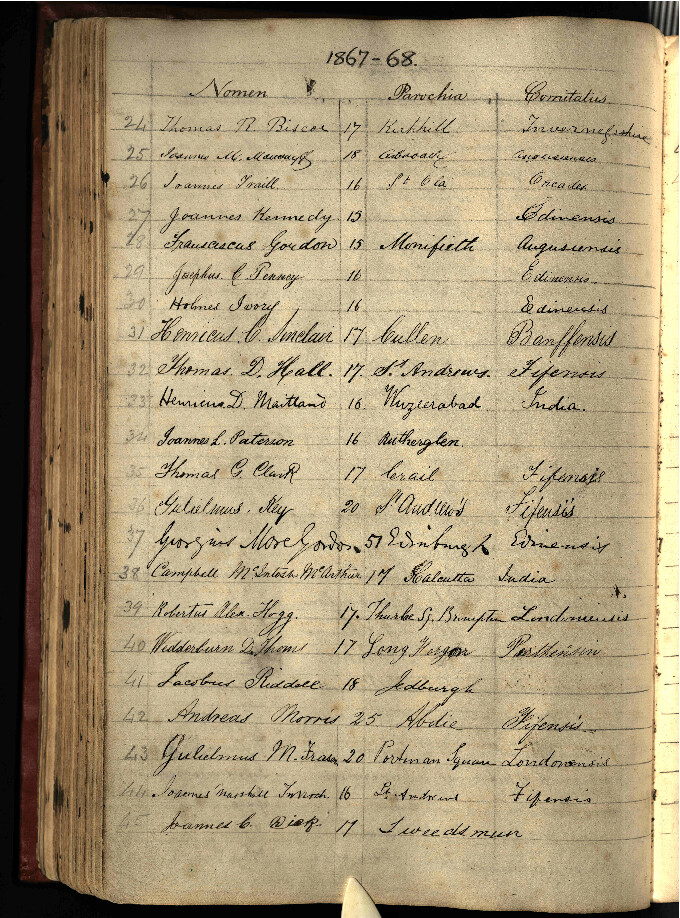 1867-68.
Nomen Parochia Comitatus
24 Thomas R Biscoe 17 Kirkhill Invernesshire
25 Joannes M. 18 Angusiensis
26 Joannes Traill 16 St Ola Orcades
27 Joannes Kennedy 15 Edinensis
28 Franciscus Gordon 15 Monifieth Angusiensis
29 Josephus C Penney 16 Edinensis
30 Holmes Ivory 16 Edinensis
31 Henricus C. Sinclair 17 Cullen Banffensis
32 Thomas D. Hall. 17. St Andrews. Fifensis
33 Henricus D. Maitland 16. Wuzeerabad India.
34 Joannes L. Paterson 16 Rutherglen.
35 Thomas G. Clark 17 Crail Fifensis
36 Gulielmus Key 20 St Andrews Fifensis
37 Georgius More Gordon 51 Edinburgh Edinensis
38 Campbell McIntosh McArthur 17 Kalcutta India
39 Robertus Alex. Hogg. 17. Thurloe Sq. Brompton Londoniensis
40 Wedderburn D. Thoms 17 Long Forgan Perthensin
41 Jacobus Riddell 18 Jedburgh
42 Andreas Morris 25 Abdie Fifensis
43 Gulielmus M. Fraser 20 Portman Square Londonensis
44 Joannes Marshall 16 St. Andrews Fifensis
45 Joannes C. Dick 17 Tweedsmuir